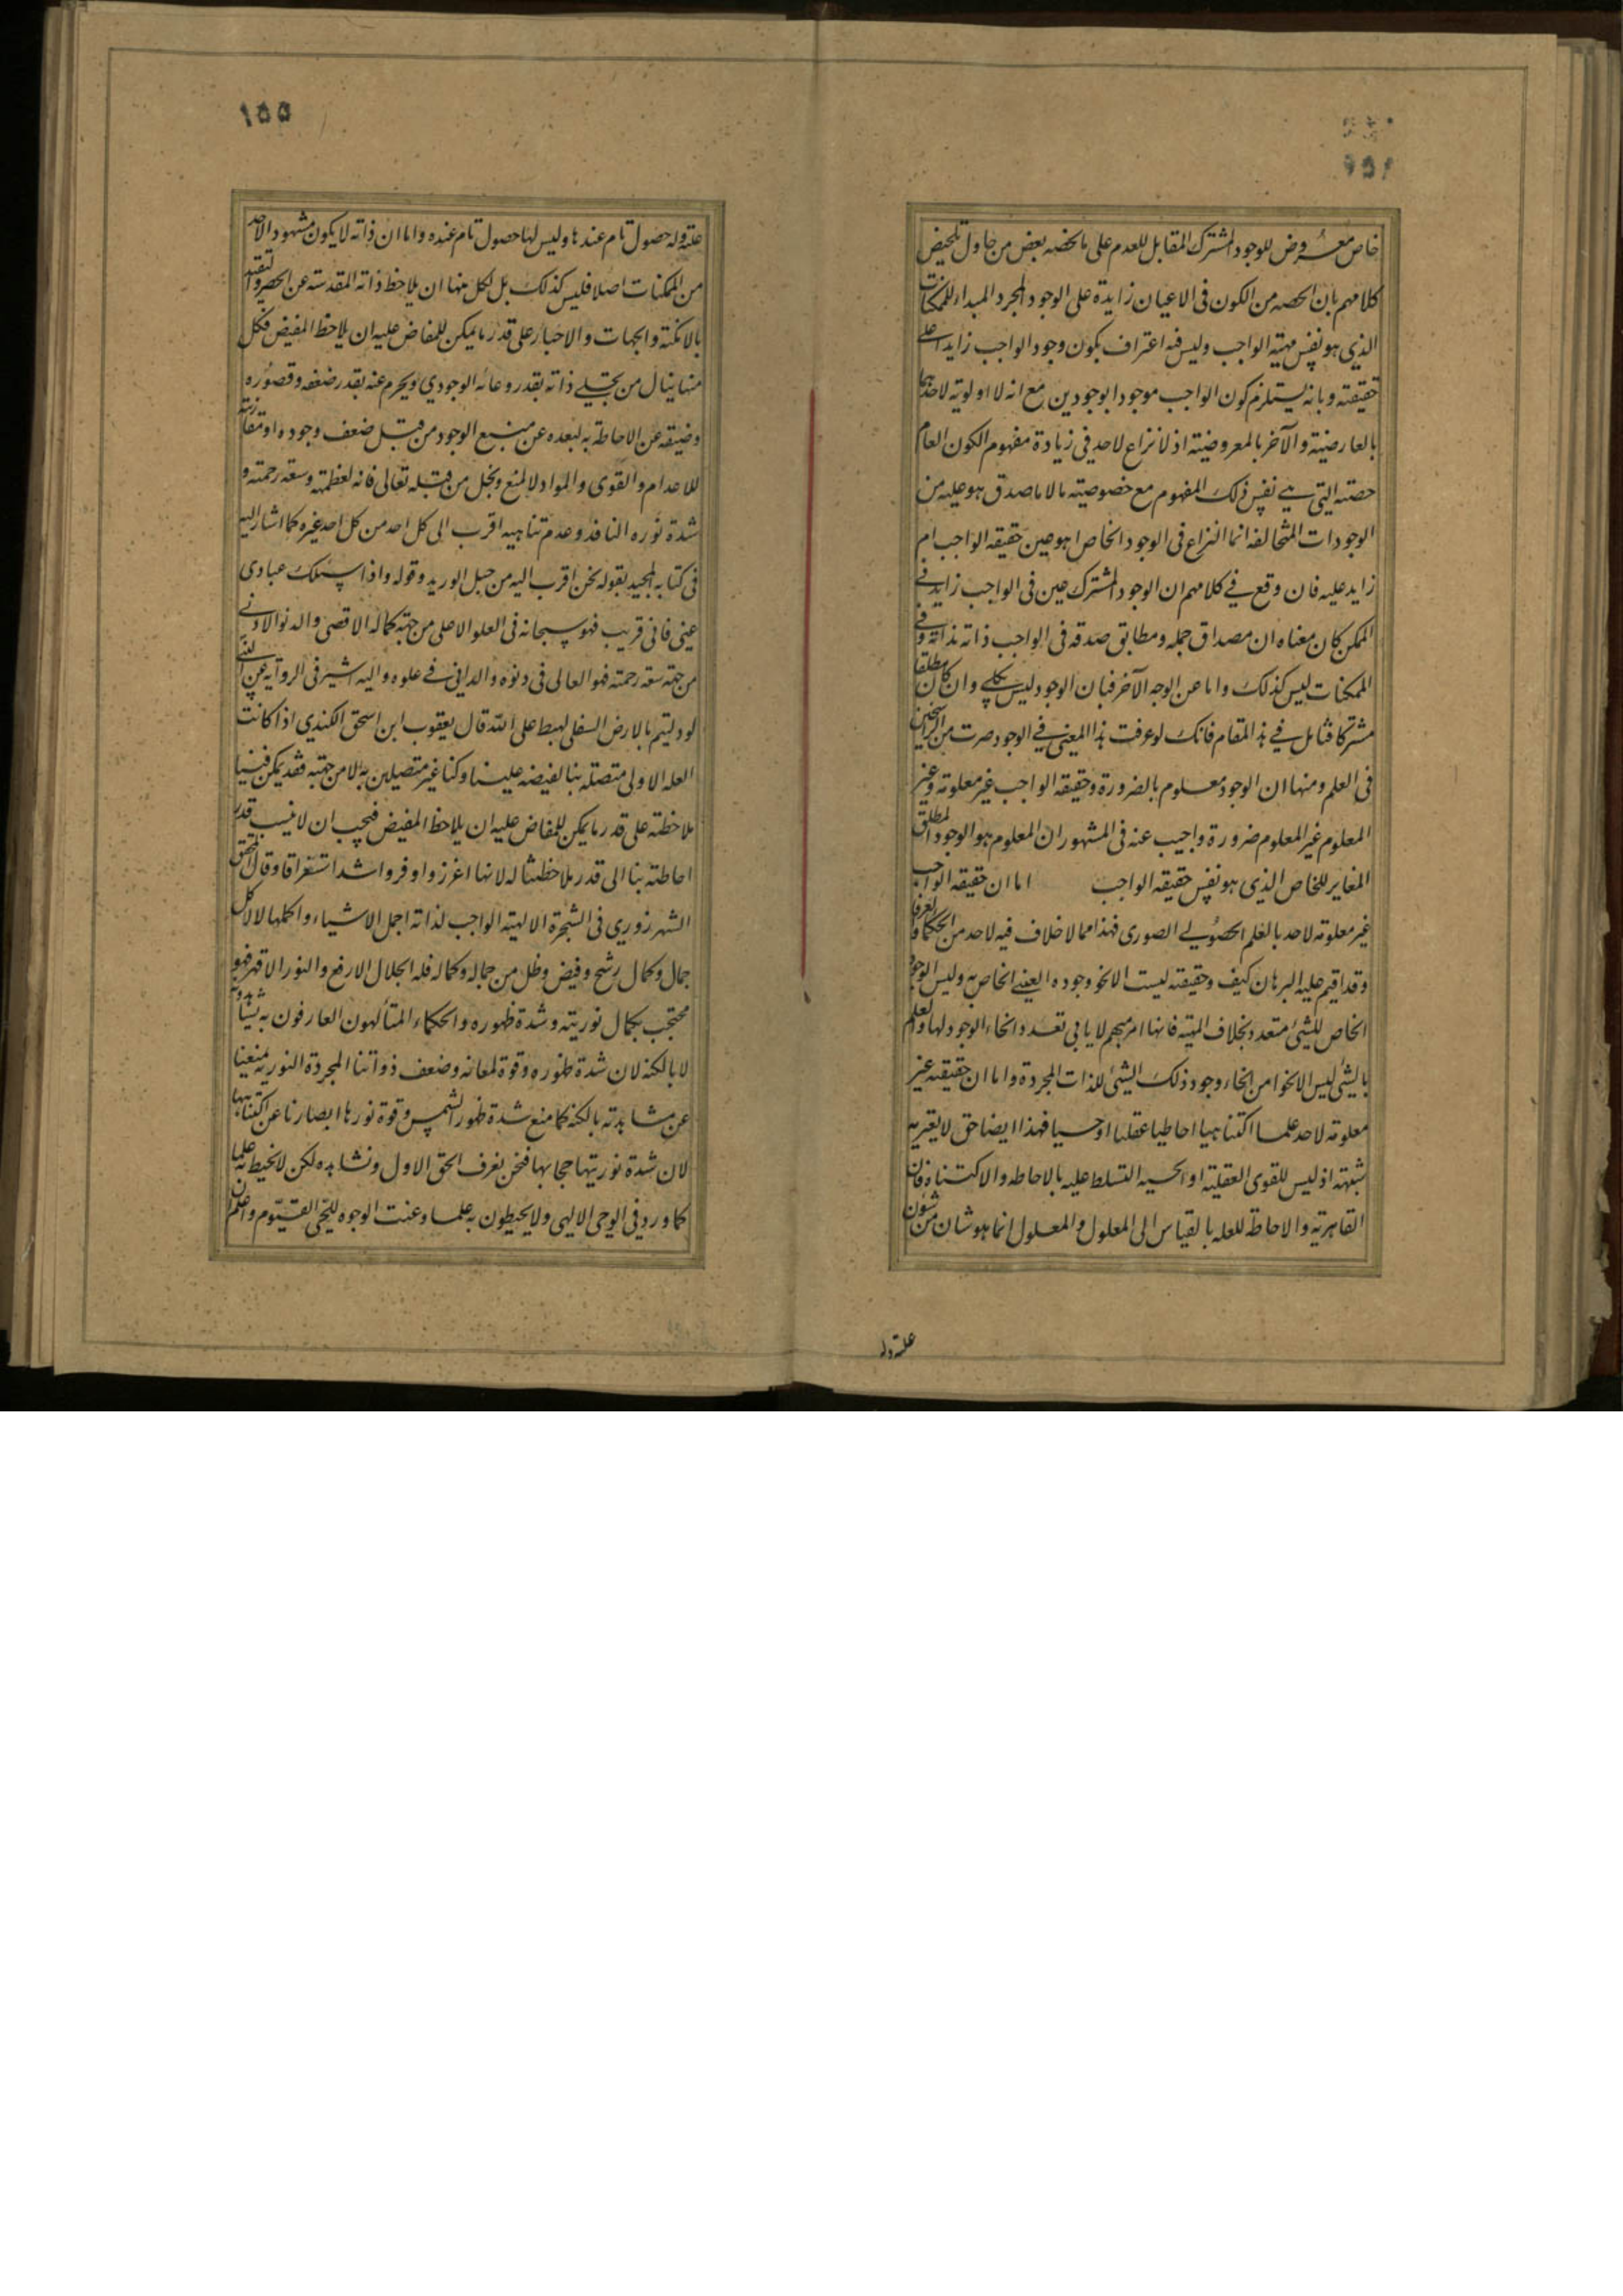 خاص معروض للوجود المشترك المقابل للعدم على ما لخصه بعض من حاول تلخيص
كلامهم بان الحصه من الكون فى الاعيان زايدة على الوجود المجرد المبداء للممكنات
الذي هو نفس مهية الواجب وليس فيه اعتراف بكون وجود الواجب زايدا على
حقيقته وبانه يستلزم كون الواجب موجودا بوجودين مع انه لا اولوية لاحدهما
بالعارضية والآخر بالمعروضية اذ لا نزاع لاحد في زيادة مفهوم الكون العام
حصته التي هي نفس ذلك المفهوم مع خصوصيته ما لا ما صدق هو عليه من
الوجودات المتخالفه انما النزاع فى الوجود الخاص اهو عين حقيقة الواجب ام
زايد عليه فان وقع في كلامهم ان الوجود المشترك عين فى الواجب زايد في
الممكن كان معناه ان مصداق حمله ومطابق صدقه فى الواجب ذاته بذاته وفي
الممكنات ليس كذلك واما عن الوجه الآخر فبان الوجود ليس بكلي وان كان مطلقا
مشتركا فتامل في هذا المقام فانك لو عرفت هذا المعنى في الوجود صرت من الراسخين
فى العلم ومنها ان الوجود معلوم بالضرورة وحقيقة الواجب غير معلومة وغير
المعلوم غير المعلوم ضرورة واجيب عنه فى المشهور ان المعلوم هو الوجود المطلق
المغاير للخاص الذي هو نفس حقيقة الواجب اما ان حقيقة الواجب
غير معلومة لاحد بالعلم الحصولي الصورى فهذا مما لا خلاف فيه لاحد من الحكماء والعرفا
وقد اقيم عليه البرهان كيف وحقيقته ليست الا نحو وجوده العيني الخاص به وليس الوجود
الخاص للشيئ متعدد بخلاف المهية فانها امر مبهم لا يابى تعدد انحاء الوجود لها والعلم
بالشيئ ليس الا نحوا من انحاء وجود ذلك الشيئ للذات المجردة واما ان حقيقته غير
معلومة لاحد علما اكتناهيا احاطيا عقليا او حسيا فهذا ايضا حق لا يعتريه
شبهة اذ ليس للقوى العقلية او الحسية التسلط عليه بالاحاطه والاكتناه فان
القاهرية والاحاطة للعلة بالقياس الى المعلول والمعلول انما هو شان من شئون
علته وله
١٥٥
علته وله حصول تام عندها وليس لها حصول تام عنده واما ان ذاته لا يكون مشهودا لاحد
من الممكنات اصلا فليس كذلك بل لكل منها ان يلاحظ ذاته المقدسة عن الحصر والتقييد
بالامكنة والجهات والاحياز على قدر ما يمكن للمفاض عليه ان يلاحظ المفيض فكل
منها ينال من تجلي ذاته بقدر وعائه الوجودي ويحرم عنه بقدر ضعفه وقصوره
وضيقه عن الاحاطة به لبعده عن منبع الوجود من قبل ضعف وجوده او مقارنته
للاعدام والقوى والمواد لا لمنع وبخل من قبله تعالى فانه لعظمته وسعة رحمته و
شدة نوره النافذ وعدم تناهيه اقرب الى كل احد من كل احد غيره كما اشار اليه
فى كتابه المجيد بقوله نحن اقرب اليه من حبل الوريد وقوله واذا سئلك عبادى
عني فاني قريب فهو سبحانه فى العلو الاعلى من جهة كماله الاقصى والدنو الادنى
من جهة سعة رحمته فهو العالى فى دنوه والدانى في علوه واليه اشير فى الرواية عن النبي
لو دليتم بالارض السفلى لهبط على الله قال يعقوب ابن اسحق الكندي اذا كانت
العلة الاولى متصلة بنا لفيضه علينا وكنا غير متصلين به الا من جهته فقد يمكن فينا
ملاحظته على قدر ما يمكن للمفاض عليه ان يلاحظ المفيض فيجب ان لا ينسب قدر
احاطته بنا الى قدر ملاحظتنا له لانها اغزر واوفر واشد استغراقا وقال المحقق
الشهرزوري فى الشجرة الالهية الواجب لذاته اجمل الاشياء واكملها لان كل
جمال وكمال رشح وفيض وظل من جماله وكماله فله الجلال الارفع والنور الاقهر فهو
محتجب بكمال نوريته وشدة ظهوره والحكماء المتألهون العارفون به يشاهدونه
لا بالكنه لان شدة ظهوره وقوة لمعانه وضعف ذواتنا المجردة النورية يمنعنا
عن مشاهدته بالكنه كما منع شدة ظهور الشمس وقوة نورها ابصارنا عن اكتناهها
لان شدة نوريتها حجابها فنحن نعرف الحق الاول ونشاهده لكن لا نحيط به علما
كما ورد فى الوحى الالهى ولا يحيطون به علما وعنت الوجوه للحي القيوم واعلم ان